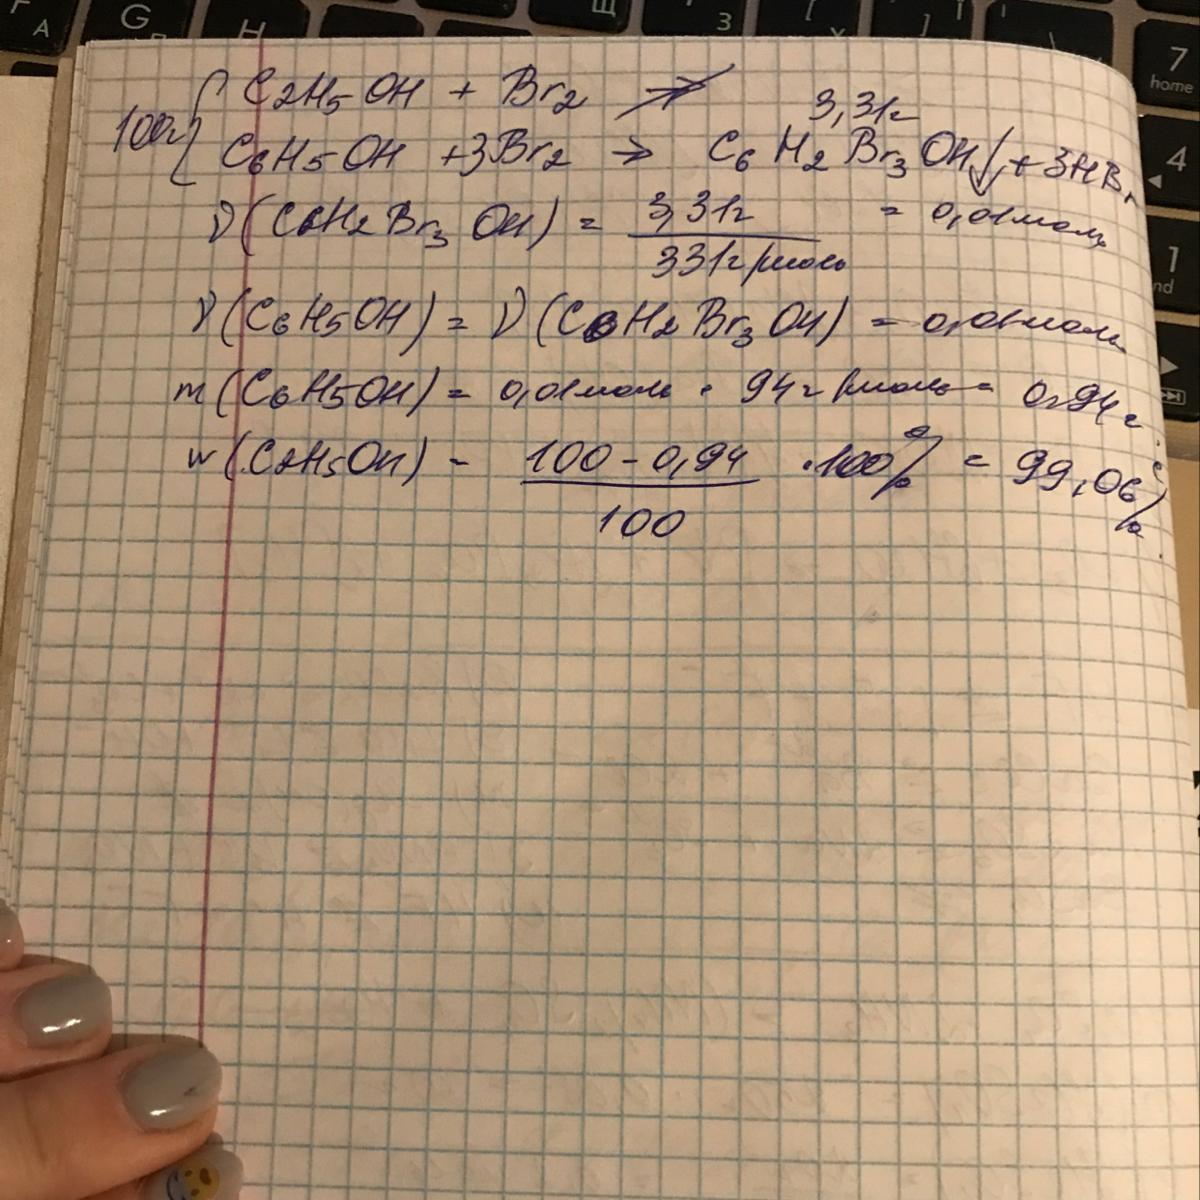 Г А G П Н Щ З [ Х ] \ 7 home
4
1 nd
100г { C2H5OH + Br2 ↛
3,31г
C6H5OH +3Br2 → C6H2Br3OH↓ + 3HBr
ν(C6H2Br3OH) = 3,31г / 331г/моль = 0,01моль
ν(C6H5OH) = ν(C6H2Br3OH) = 0,01моль
m(C6H5OH) = 0,01моль · 94г/моль = 0,94г.
w(C2H5OH) = 100-0,94 / 100 ·100% = 99,06%